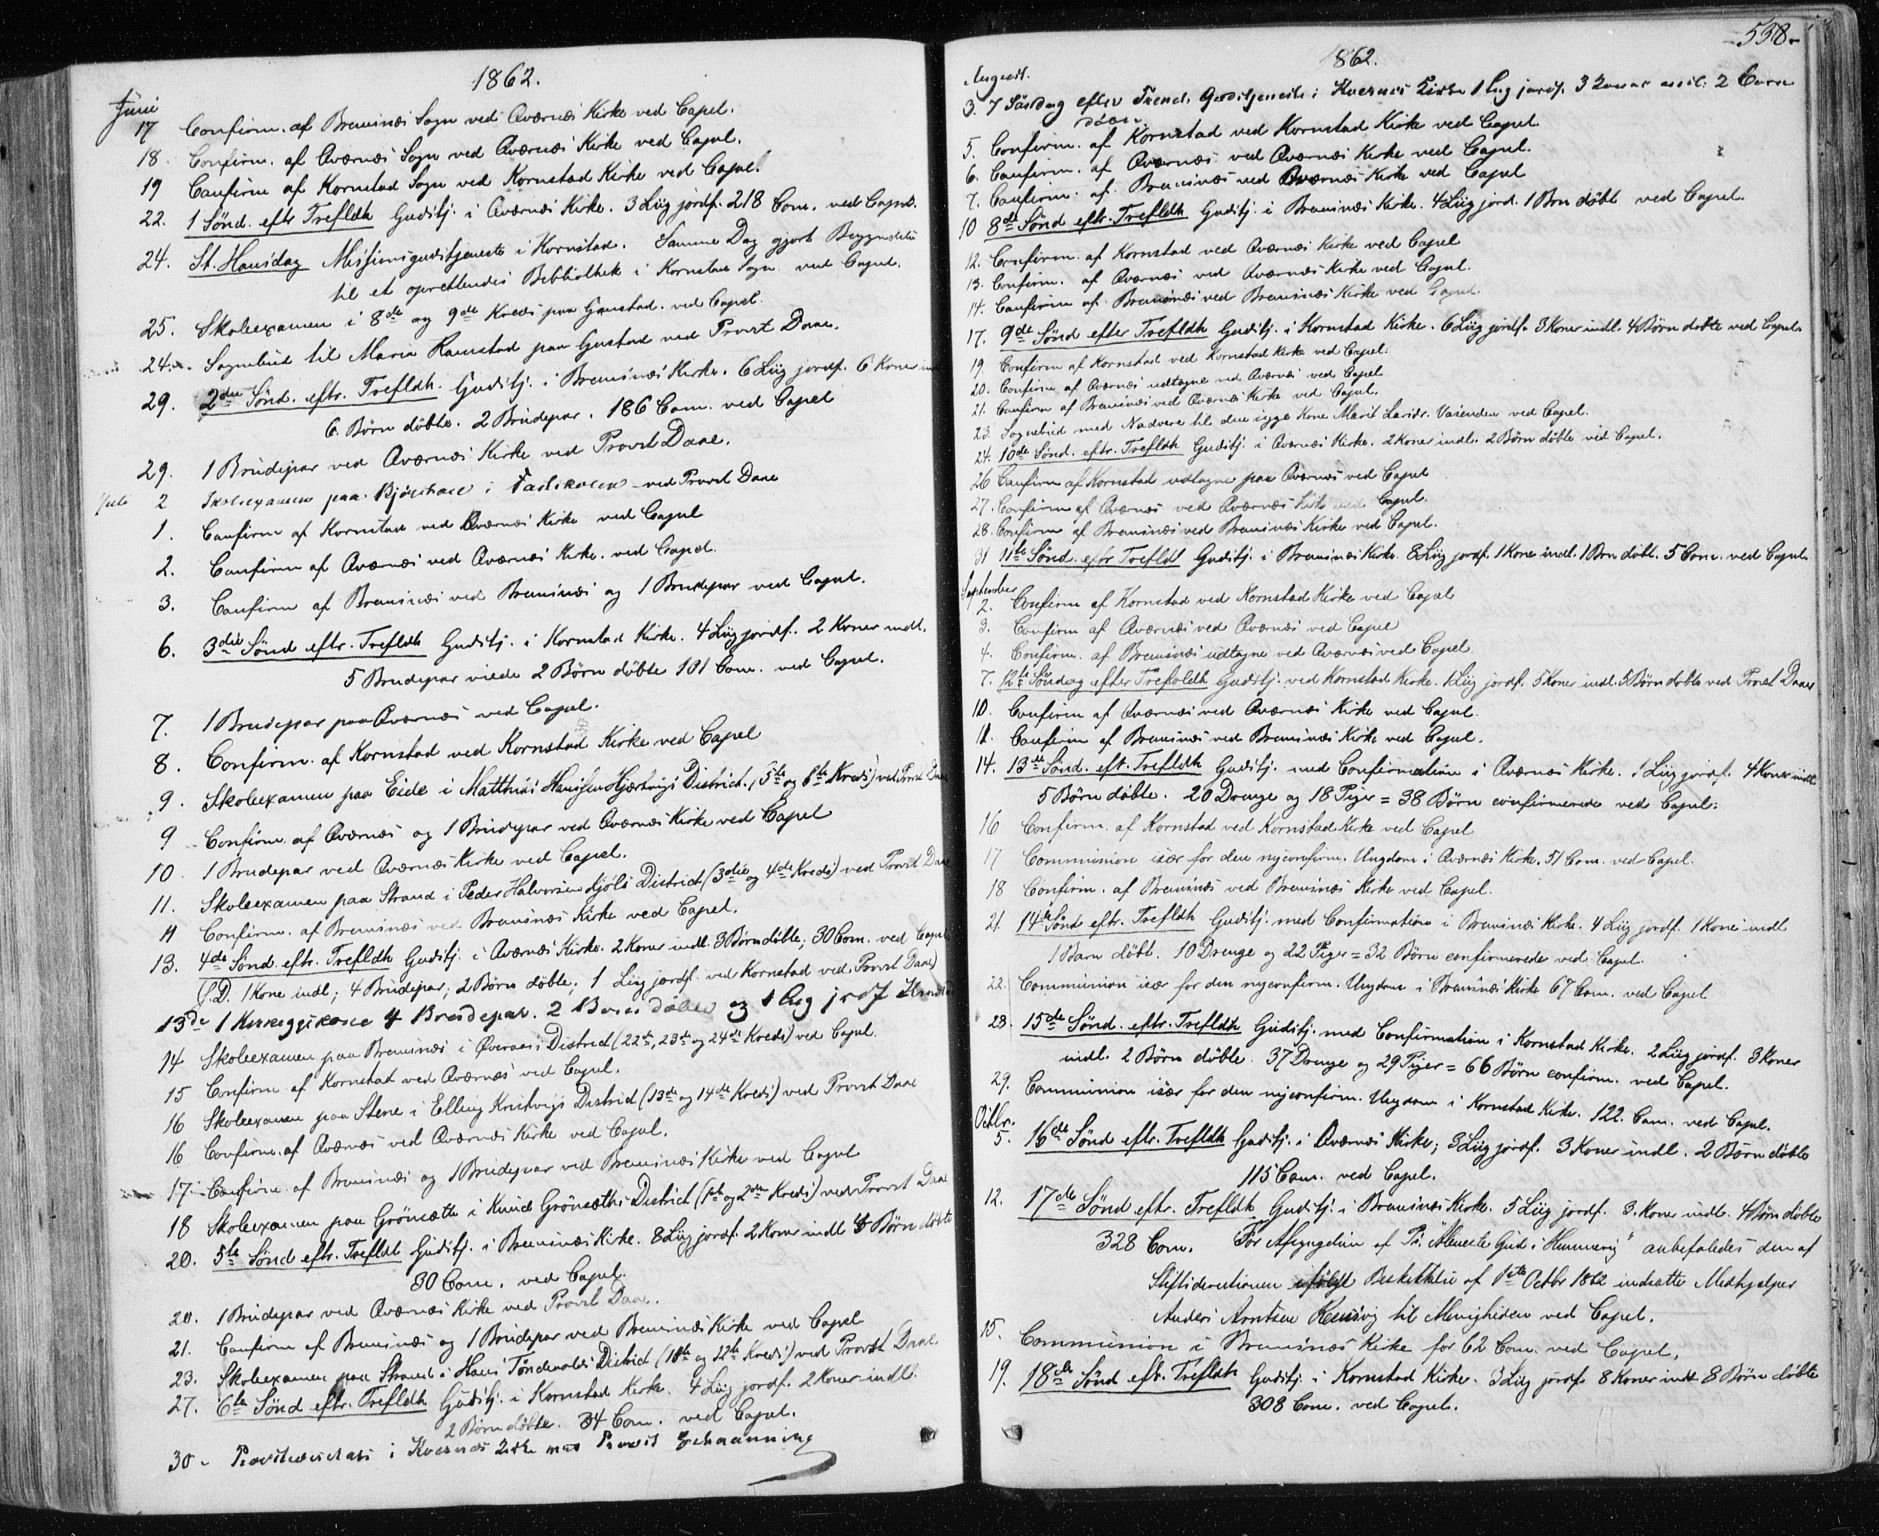 1862.
Juni
17 Confirm. af Bremsnæs Sogn ved Qværnæs Kirke ved Capel.
18. Confirm. af Qværnæs Sogn ved Qværnæs Kirke ved Capel.
19 Confirm af Kornstad Sogn ved Kornstad Kirke ved Capel.
22. 1 Sønd. eftr Trefldh Gudstj. i Qværnæs Kirke. 3 Liig jordf. 218 Com. ved Capel.
24. St. Hansdag Missionsgudstjeneste i Kornstad. Samme Dag gjort Begyndelse
til et oprettendes Bibliothek i Kornstad Sogn ved Capel.
25. Skoleexamen i 8de og 9de Kreds paa Gaustad ved Capel.
24. Sognebud til Maren Ramstad paa Gustad ved Provst Daae.
29. 2den Sønd. eftr. Trefldh. Gudstj. i Bremsnæs Kirke. 6 Liig jordf. 6 Koner
6 Børn døbte. 2 Brudepar. 186 Com. ved Capel
29. 1 Brudepar ved Qværnæs Kirke ved Provst Daae.
Juli 2 Skoleexamen paa i Fastskolen ved Provst Daae
1. Confirm af Kornstad ved Qværnæs Kirke ved Capel
2. Confirm af Qværnæs ved Qværnæs Kirke. ved Capel.
3. Confirm af Bremsnæs ved Bremsnæs og 1 Brudepar ved Capel.
6. 3die Sønd eftr. Trefldh Gudstj. i Kornstad Kirke. 4 Liig jordf. 2 Koner indl.
5 Brudepar viede 2 Børn døbte 101 Com. ved Capel.
7. 1 Brudepar paa Qværnæs ved Capel.
8. Confirm. af Kornstad ved Kornstad Kirke ved Capel
9. Skoleexamen paa Eide i Matthias Hanssen District, (5te og 6te Kreds) ved Provst Daae
9 Confirm. af Qværnæs og 1 Brudepar ved Qværnæs Kirke ved Capel
10. 1 Brudepar ved Qværnæs Kirke ved Capel.
11. Skoleexamen paa Strand i Peder Halvorsen District (3die og 4de Kreds) ved Provst Daae
11 Confirm. af Bremsnæs ved Bremsnæs Kirke ved Capel.
13. 4de Sønd. eftr. Trefldh Gudstj. i Qværnæs Kirke. 2 Koner indl. 3 Børn døbte; 30 Com. ved Capel
(S.D. 1 Kone indl; 4 Brudepar; 2 Børn døbte; 1 Liig jordf. ved Kornstad ved Provst Daae)
13de 1 4 Brudepar. 2 Børn døbte og 1 Liig jordf
14 Skoleexamen paa Bremsnæs i District (22de, 23de og 24de Kreds) ved Capel.
15 Confirm af Kornstad ved Qværnæs ved Capel.
16 Skoleexamen paa Stene i Elling District (13de og 14de Kreds) ved Provst Daae
16 Confirm. af Qværnæs ved Qværnæs Kirke ved Capel.
17. Confirm af Bremsnæs og 1 Brudepar ved Bremsnæs Kirke ved Capel
18 Skoleexamen paa Grönsætte i Knud Grönsæths District (1ste og 2den Kreds) ved Provst Daae
20. 5te Sønd eftr. Trefldh Gudstj. i Bremsnæs Kirke. 8 Liig jordf. 2 Koner indl 4 Børn døbte
30 Com. ved Capel.
20. 1 Brudepar ved Qværnæs Kirke ved Provst Daae.
21. Confirm af Bremsnæs og 1 Brudepar ved Bremsnæs Kirke ved Capel
23. Skoleexamen paa Strand i Hans District (11te og 12te Kreds) ved Provst Daae.
27. 6te Sønd eftr. Trefldh Gudstj. i Kornstad Kirke. 4 Liig jordf. 2 Koner indl.
2 Børn døbte. 34 Com. ved Capel.
30. i Kvernæs Kirke med Provst Schanning
538.
1862.
August.
3. 7 Söndag efter Trend. Gudstjeneste i Kvernæs Kirke 1 Lig jordf. 3 Koner indl. 2 Børn
døbte
5. Confirm. af Kornstad ved Kornstad Kirke ved Capel.
6. Confirm. af Qværnæs ved Qværnæs Kirke ved Capel.
7. Confirm. af Bremsnæs ved Qværnæs Kirke ved Capel
10 8de Sønd eftr. Trefldh Gudstj. i Bremsnæs Kirke. 4 Liig jord. 1 Brn døbt ved Capel.
12. Confirm. af Kornstad ved Qværnæs Kirke ved Capel
13. Confirm. af Qværnæs ved Qværnæs Kirke ved Capel.
14. Confirm af Bremsnæs ved Bremsnæs Kirke ved Capel.
17. 9de Sønd efter Trefldh Gudstj. i Kornstad Kirke. 6 Liig jordf. 3 Koner indl. 4 Børn døbte ved Capel.
19. Confirm af Kornstad ved Kornstad Kirke ved Capel.
20. Confirm af Qværnæs udtagne ved Qværnæs ved Capel
21. Confirm af Bremsnæs ved Qværnæs Kirke ved Capel.
23. Sognebud med Nadvere til den syge Kone Marit Larsdr. Vasenden ved Capel.
24. 10de Sønd. eftr. Trefldh Gudstj. i Qværnæs Kirke. 2 Koner indl. 2 Børn døbte ved Capel.
26 Confirm af Kornstad udtagne paa Qværnæs ved Capel
27. Confirm af Qværnæs ved Qværnæs Kirke ved Capel.
28. Confirm af Bremsnæs ved Bremsnæs Kirke ved Capel.
31 11te Sønd. eftr Trefldh Gudstj. i Bremsnæs Kirke. 8 Liig jordf. 1 Kone indl. 1 Brn døbt. 5 Com. ved Capel.
September
2. Confirm af Kornstad ved Kornstad Kirke ved Capel
3. Confirm af Qværnæs ved Qværnæs ved Capel
4. Confirm. af Bremsnæs udtagne ved Qværnæs ved Capel.
7. 12te Söndag efter Trefoldh Gudstj. ved Kornstad Kirke. 1 Liig jordf. 5 Koner indl. 5 Børn døbte ved Provst Daae
10. Confirm af Qværnæs ved Qværnæs Kirke ved Capel.
11. Confirm af Bremsnæs ved Bremsnæs Kirke ved Capel.
14. 13de Sønd. eft. Trefldh Gudstj. med Confirmation i Qværnæs Kirke. 1 Liig jordf. 4 Koner indl.
5 Børn døbte. 20 Drenge og 18 Piger = 38 Børn confirmerede ved Capel.
16 Confirm. af Kornstad ved Kornstad Kirke ved Capel
17 Communion især for den nyconfirm. Ungdom i Qværnæs Kirke. 51 Com. ved Capel.
18 Confirm. af Bremsnæs ved Bremsnæs Kirke ved Capel.
21. 14de Sønd eftr. Trefldh Gudstj. med Confirmation i Bremsnæs Kirke. 4 Liig jordf. 1 Kone indl
1 Barn døbt. 10 Drenge og 22 Piger = 32 Børn confirmerede ved Capel.
22. Communion især for den nyconfirm. Ungdom i Bremsnæs Kirke 67 Com. ved Capel
28. 15de Sønd. eftr. Trefldh Gudstj. med Confirmation i Kornstad Kirke. 2 Liig jordf. 3 Koner
indl. 2 Børn døbte. 37 Drenge og 29 Piger = 66 Børn confirm. ved Capel.
29. Communion især for den nyconfirm. Ungdom i Kornstad Kirke. 122. Com. ved Capel.
Octbr.
5. 16de Sønd eftr. Trefldh Gudstj. i Qværnæs Kirke; 3 Liig jordf. 3 Koner indl. 2 Børn døbte
115 Com. ved Capel.
12. 17de Sønd eftr. Trefldh Gudstj. i Bremsnæs Kirke. 5 Liig jordf. 3. Koner indl. 4 Børn døbte
328 Com. Før Afsyngelsen af Ps. "Aleneste Gud i Himmerig" anbefaledes den af
Stiftsdirectionen ifølge Beskikkelse af 1ste Octbr 1862 indsatte Medhjelper
Anders Arntsen til Menigheden ved Capel.
15. Communion i Bremsnæs Kirke for 62 Com. ved Capel.
19. 18de Sønd eft. Trefldh Gudstj. i Kornstad Kirke. 3 Liig jordf. 8 Koner indl 8 Børn døbte
308 Com. ved Capel.